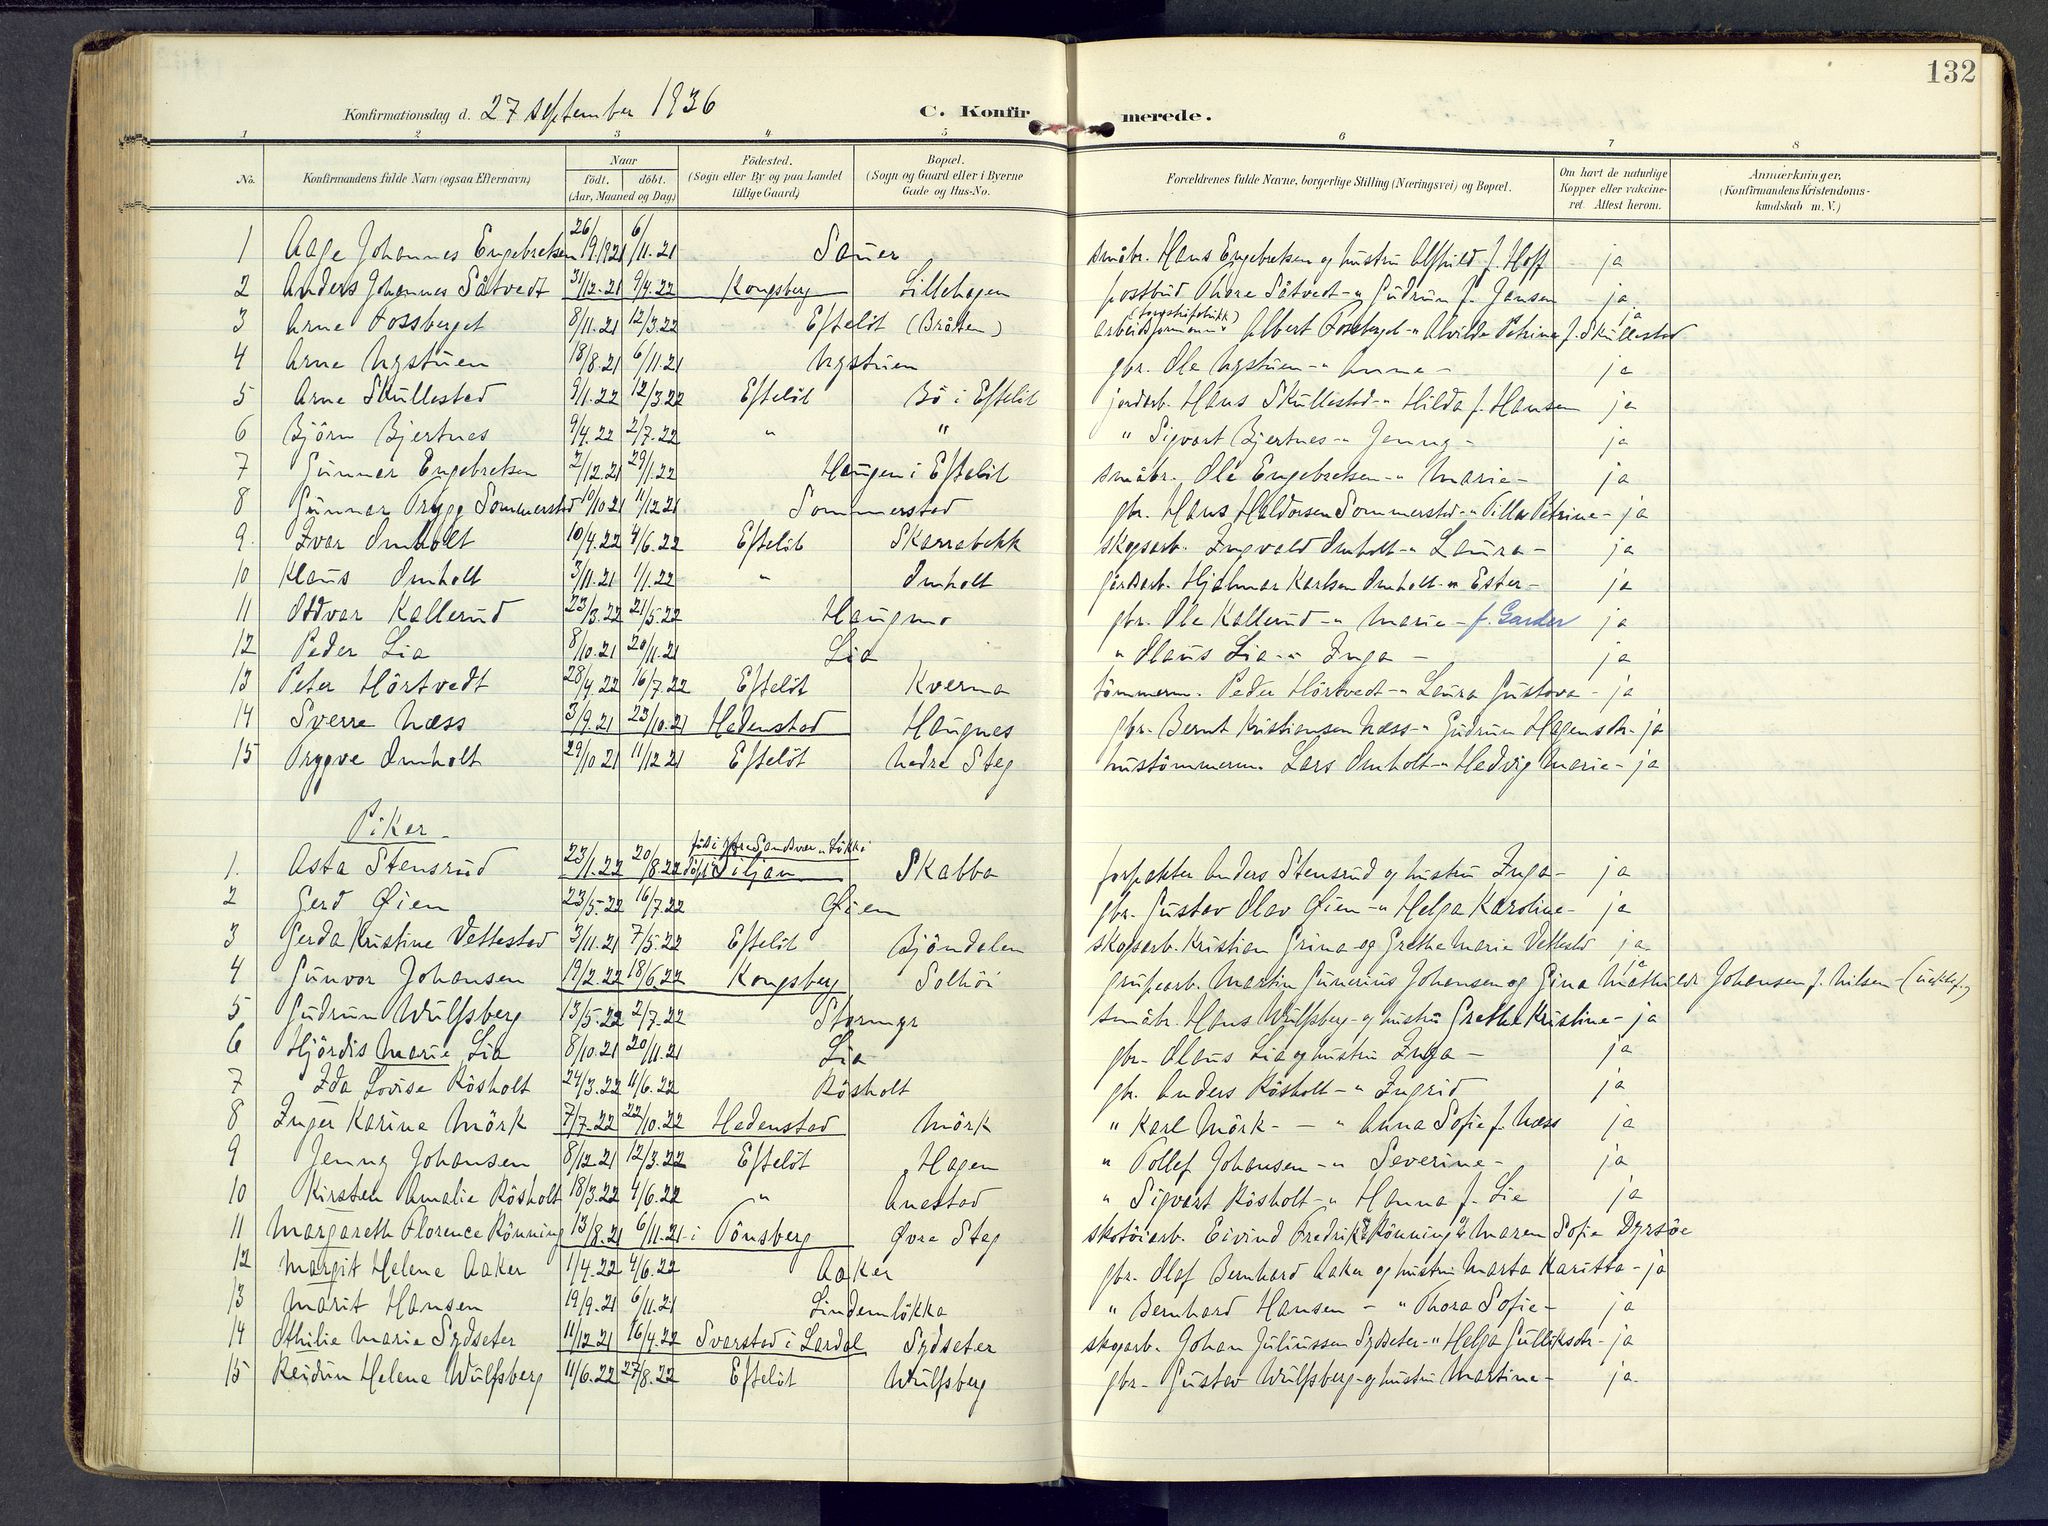 132
Konfirmationsdag d. 27 september 1936 C. Konfirmerede.
1 2 3 4 5 6 7 8
No. Konfirmandens fulde Navn (ogsaa Efternavn) Naar födt. döbt. (Aar, Maaned og Dag) Födested. (Sogn eller By og paa Landet tillige Gaard) Bopæl. (Sogn og Gaard eller i Byerne Gade og Hus-No. Forældrenes fulde Navne, borgerlige Stilling (Næringsvei) og Bopæl. Om havt de naturlige Kopper eller vakcineret. Attest herom. Anmærkninger, (Konfirmandens Kristendomskundskab m. V.)
1 Aage Johannes Engebretsen 26/9.1921 6/11.21 Sauer småbr. Hans Engebretsen og hustru Alfhild f. Hoff ja
2 Anders Johannes Såtvedt 31/12.21 9/4.22 Kongsberg Lillehagen postbud Thore Såtvedt -„ Gudrun f. Jansen ja
3 Arne Fossberget 8/11.21 12/3.22 Efteløt (Bråten) arbeidsformann Albert Fossberget -„ Alvilde Petrine f. Skullestad ja
4 Arne Nystuen 18/8.21 6/11.21 Nystuen gbr. Ole Nystuen -„ Anna - ja
5 Arne Skullestad 9/1.22 12/3.22 Efteløt Bö i Efteløt jordarb. Hans Skullestad -„ Hilda f. Hansen ja
6 Björn Bjertnes 9/4.22 2/7.22 „ „ „ Sigvart Bjertnes -„ Jenny - ja
7 Gunnar Engebretsen 2/12.21 29/1.22 Haugen i Efteløt småbr. Ole Engebretsen -„ Marie - ja
8 Gunnar Trygg Sommerstad 10/10.21 11/12.21 Sommerstad gbr. Hans Haldorsen Sommerstad -„ Tilla Petrine - ja
9 Ivar Omholt 10/4.22 4/6.22 Efteløt Skarrabekk skogsarb. Ingvald Omholt -„ Laura - ja
10 Klaus Omholt 3/11.21 1/1.22 „ Omholt gårdsarb. Hjalmar Karlsen Omholt -„ Ester - ja
11 Oddvar Kallerud 23/3.22 21/5.22 Haugmo gbr. Ole Kallerud -„ Marie - f. Garder ja
12 Peder Lia 8/10.21 20/11.21 Lia „ Olaus Lia -„ Inga - ja
13 Peter Hörtvedt 28/4.22 16/7.22 Efteløt Kverma tömmerm. Peder Hörtvedt -„ Laura Gustava - ja
14 Sverre Næss 3/9.21 23/10.21 Hedenstad Haugnes gbr. Bernt Kristiansen Næss -„ Gudrun Hagensdtr - ja
15 Trygve Omholt 29/10.21 11/12.21 Efteløt Nedre Steg hustömmerm. Lars Omholt -„ Hedvig Marie - ja
Piker
1. Asta Stensrud 23/1.22 20/8.22 döpt Siljan Skabba forpakter Anders Stensrud og hustru Inga - ja
2 Gerd Øien 23/5.22 16/7.22 Øien gbr. Gustav Olav Øien -„ Helga Karoline - ja
3 Gerda Kristine Vettestad 3/11.21 7/5.22 Efteløt Bjöndalen skogsarb. Kristian Grina og Grethe Marie Vettestad ja
4 Gunvor Johansen 19/2.22 18/6.22 Kongsberg Solhöi grubearb. Martin Gunerius Johansen og Gina Mathilde Johansen f. Nilsen - ja
5 Gudrun Wulfsberg 13/5.22 2/7.22 Stormyr småbr. Hans Wulfsberg - og hustru Grethe Kristine - ja
6 Hjördis Marie Lia 8/10.21 20/11.21 Lia gbr. Olaus Lia og hustru Inga - ja
7 Ida Lovise Rösholt 24/3.22 4/6.22 Rösholt gbr. Anders Rösholt -„ Ingrid ja
8 Inger Karine Mörk 7/7.22 22/10.22 Hedenstad Mörk „ Karl Mörk - „ Anna Sofie f. Næss ja
9 Jenny Johansen 8/12.21 12/3.22 Efteløt Hagen „ Tollef Johansen -„ Severine - ja
10 Kirsten Amalie Rösholt 18/3.22 4/6.22 „ Anestad „ Sigvart Rösholt -„ Hanna f. Lie ja
11 Margareth Florence Rönning 13/8.21 6/11.21 i Tönsberg Øvre Steg skotöiarb. Eivind Fredrik Rönning og Maren Sofie Dyrsöe
12 Margit Helene Aaker 1/4.22 4/6.22 Aaker gbr. Olaf Bernhard Aaker og hustru Marta Karitta - ja
13 Marit Hansen 19/9.21 6/11.21 Lindemlökka „ Bernhard Hansen - „ Thora Sofie - ja
14 Othilie Marie Sydseter 11/12.21 16/4.22 Svarstad i Lardal Sydseter skogarb. Johan Juliussen Sydseter -„ Helga Gulliksdtr - ja
15 Reidun Helene Wulfsberg 11/6.22 27/8.22 Efteløt Wulfsberg gbr. Gustav Wulfsberg - og hustru Martine - ja